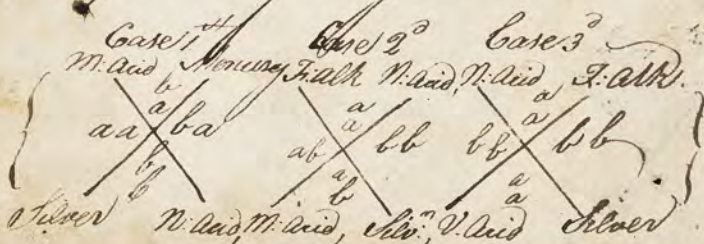 Case 1st Case 2d Case 3d
M: Acid Mercury F: Alk N: Acid, N: Acid F: Alk.
b a a
a a a
aa ba ab bb bb bb
b a a
b b a
Silver N: Acid, M: Acid, Silvr, V: Acid Silver